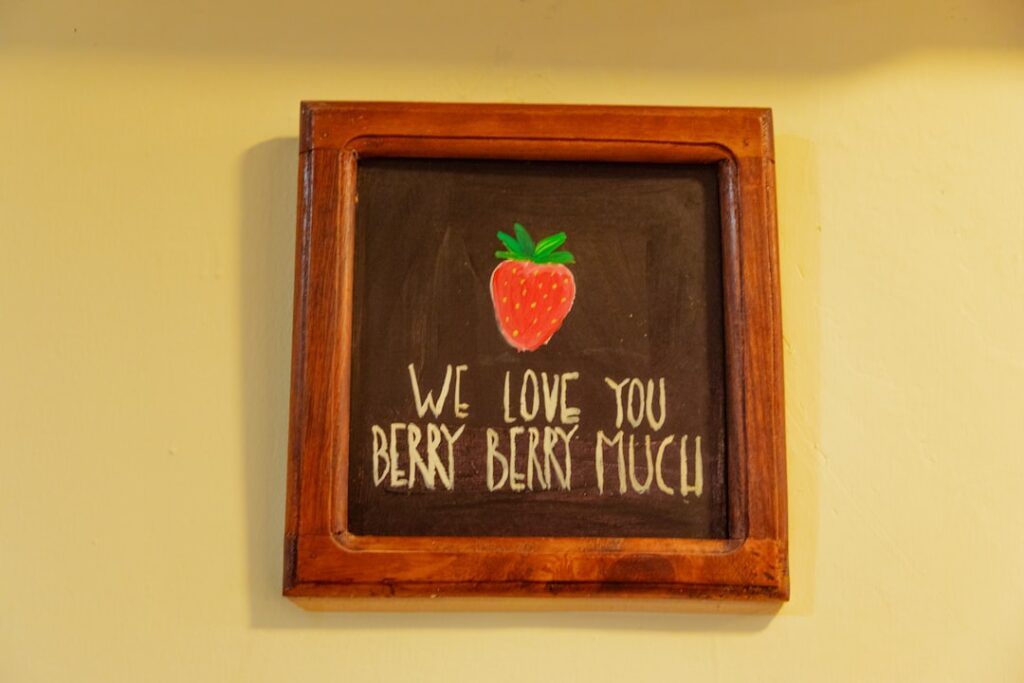 WE LOVE YOU
BERRY BERRY MUCH